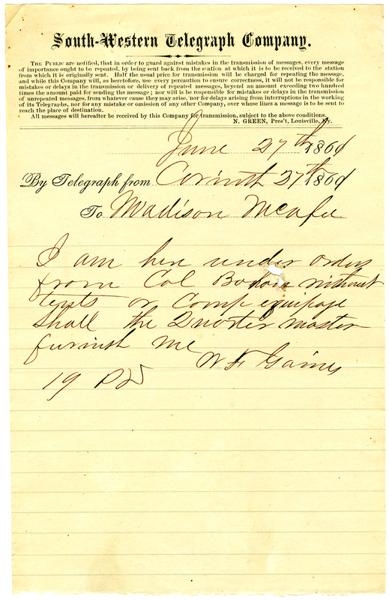 South-Western Telegraph Company.
THE PUBLIC are notified, that in order to guard against mistakes in the transmission of messages, every message
of importance ought to be repeated, by being sent back from the station at which it is to be received to the station
from which it is originally sent. Half the usual price for transmission will be charged for repeating the message,
and while this Company will, as heretofore, use every precaution to ensure correctness, it will not be responsible for
mistakes or delays in the transmission or delivery of repeated messages, beyond an amount exceeding two hundred
times the amount paid for sending the message; nor will it be responsible for mistakes or delays in the transmission
of unrepeated messages, from whatever cause they may arise, nor for delays arising from interruptions in the working
of its Telegraphs, nor for any mistake or omission of any other Company, over whose lines a message is to be sent to
reach the place of destination.
All messages will hereafter be received by this Company for transmission, subject to the above conditions.
N. GREEN, Pres't, Louisville, Ky.
June 27th 1864
By Telegraph from Corinth 27th 1864
To Madison McAfee
I am here under orders
from Col without
tents or Camp equipage
Shall the Quarter master
furnish me
W F Gaines
19